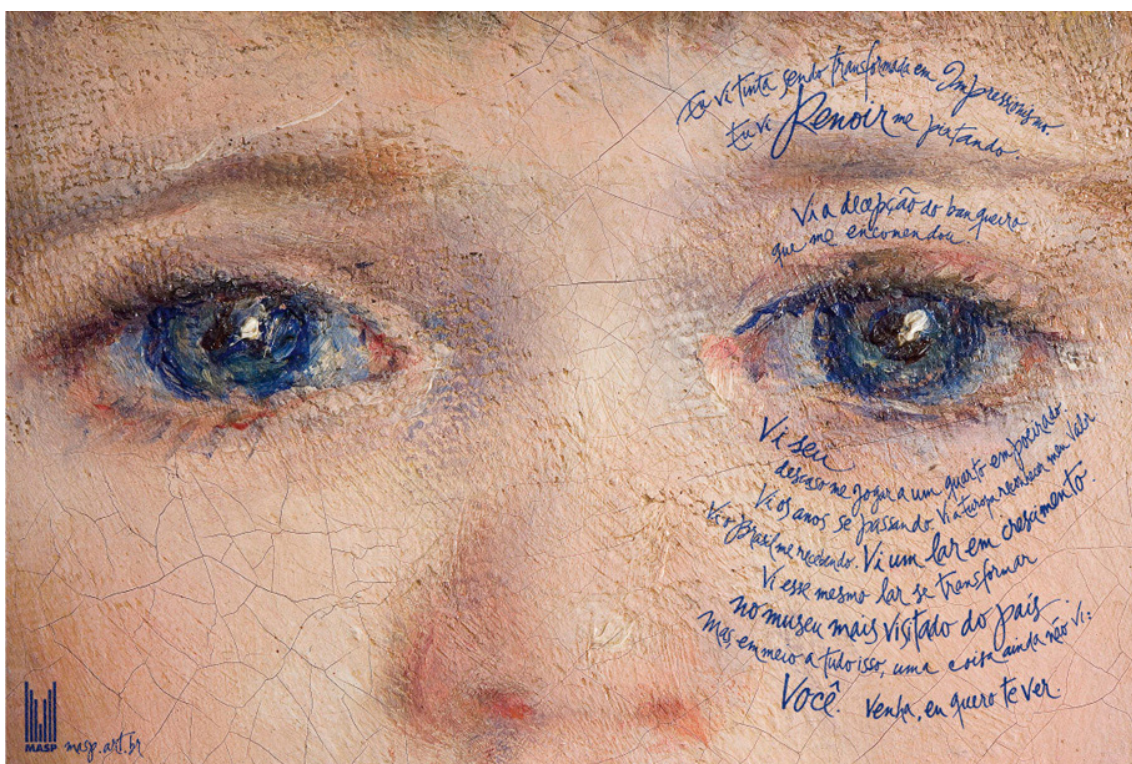 Eu vi tinta sendo transformada em Impressionismo.
Eu vi Renoir me pintando.
Vi a decepção do banqueiro
que me encomendou.
Vi seu
descaso me jogar a um quarto empoeirado.
Vi os anos se passando. Vi a Europa reconhecer meu valor
Vi o Brasil me recebendo. Vi um lar em crescimento.
Vi esse mesmo lar se transformar
no museu mais visitado do país.
Mas, em meio a tudo isso, uma coisa ainda não vi:
Você. Venha, eu quero te ver.
MASP masp.art.br